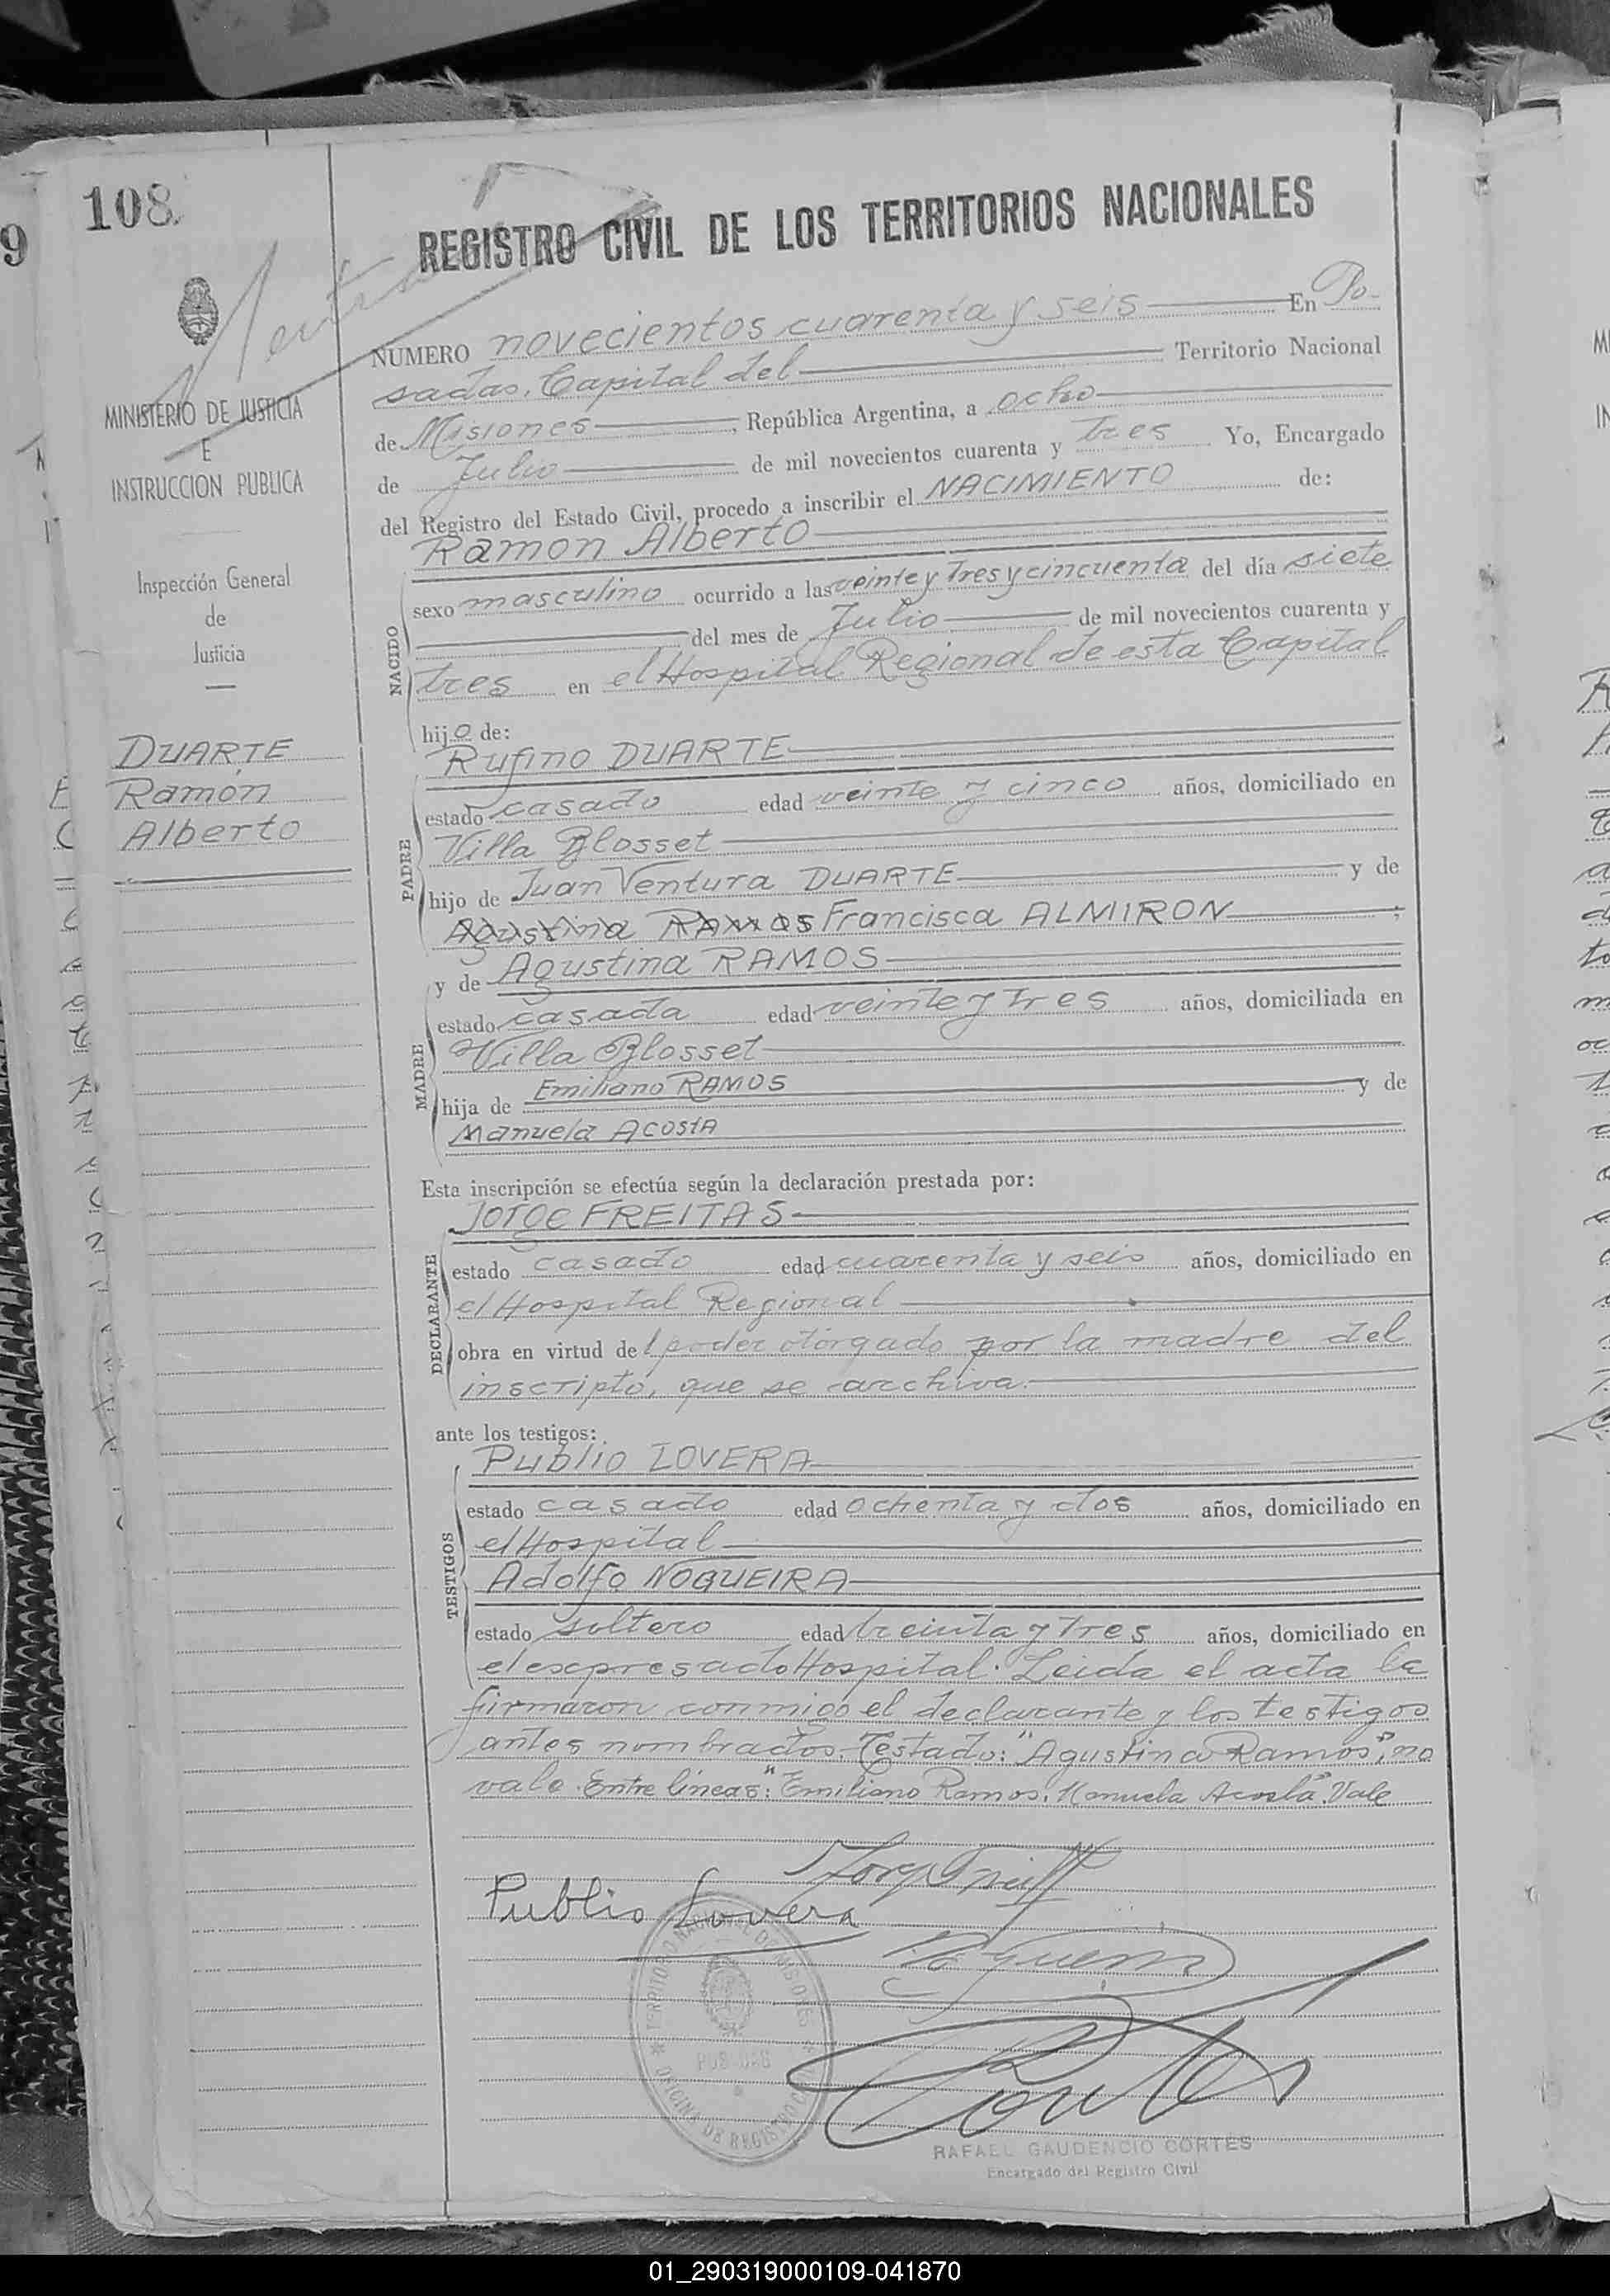 108
REGISTRO CIVIL DE LOS TERRITORIOS NACIONALES
NUMERO novecientos cuarenta y seis En Po-
sadas, Capital del Territorio Nacional
de Misiones, República Argentina, a ocho
de Julio de mil novecientos cuarenta y tres Yo, Encargado
del Registro del Estado Civil, procedo a inscribir el NACIMIENTO de:
MINISTERIO DE JUSTICIA
E
INSTRUCCION PUBLICA
Inspección General
de
Justicia
DUARTE
Ramón
Alberto
NACIDO
Ramon Alberto
sexo masculino ocurrido a las veinte y tres y cincuenta del día siete
del mes de Julio de mil novecientos cuarenta y
tres en el Hospital Regional de esta Capital
hijo de:
PADRE
Rufino DUARTE
estado casado edad veinte y cinco años, domiciliado en
Villa Blosset
hijo de Juan Ventura DUARTE y de
Agustina RAMOS Francisca ALMIRON;
MADRE
y de Agustina RAMOS
estado casada edad veinte y tres años, domiciliada en
Villa Blosset
hija de Emiliano RAMOS y de
Manuela ACOSTA
Esta inscripción se efectúa según la declaración prestada por:
DECLARANTE
Jorge FREITAS
estado casado edad cuarenta y seis años, domiciliado en
el Hospital Regional
obra en virtud del poder otorgado por la madre del
inscripto, que se archiva.
ante los testigos:
TESTIGOS
Publio LOVERA
estado casado edad ochenta y dos años, domiciliado en
el Hospital
Adolfo NOGUEIRA
estado soltero edad treinta y tres años, domiciliado en
el expresado Hospital. Leida el acta la
firmaron conmigo el declarante y los testigos
antes nombrados. Testado: "Agustina Ramos", no
vale. Entre líneas: "Emiliano Ramos. Manuela Acosta". Vale
Publio Lovera
POSADAS
RAFAEL GAUDENCIO CORTÉS
Encargado del Registro Civil
01_290319000109-041870